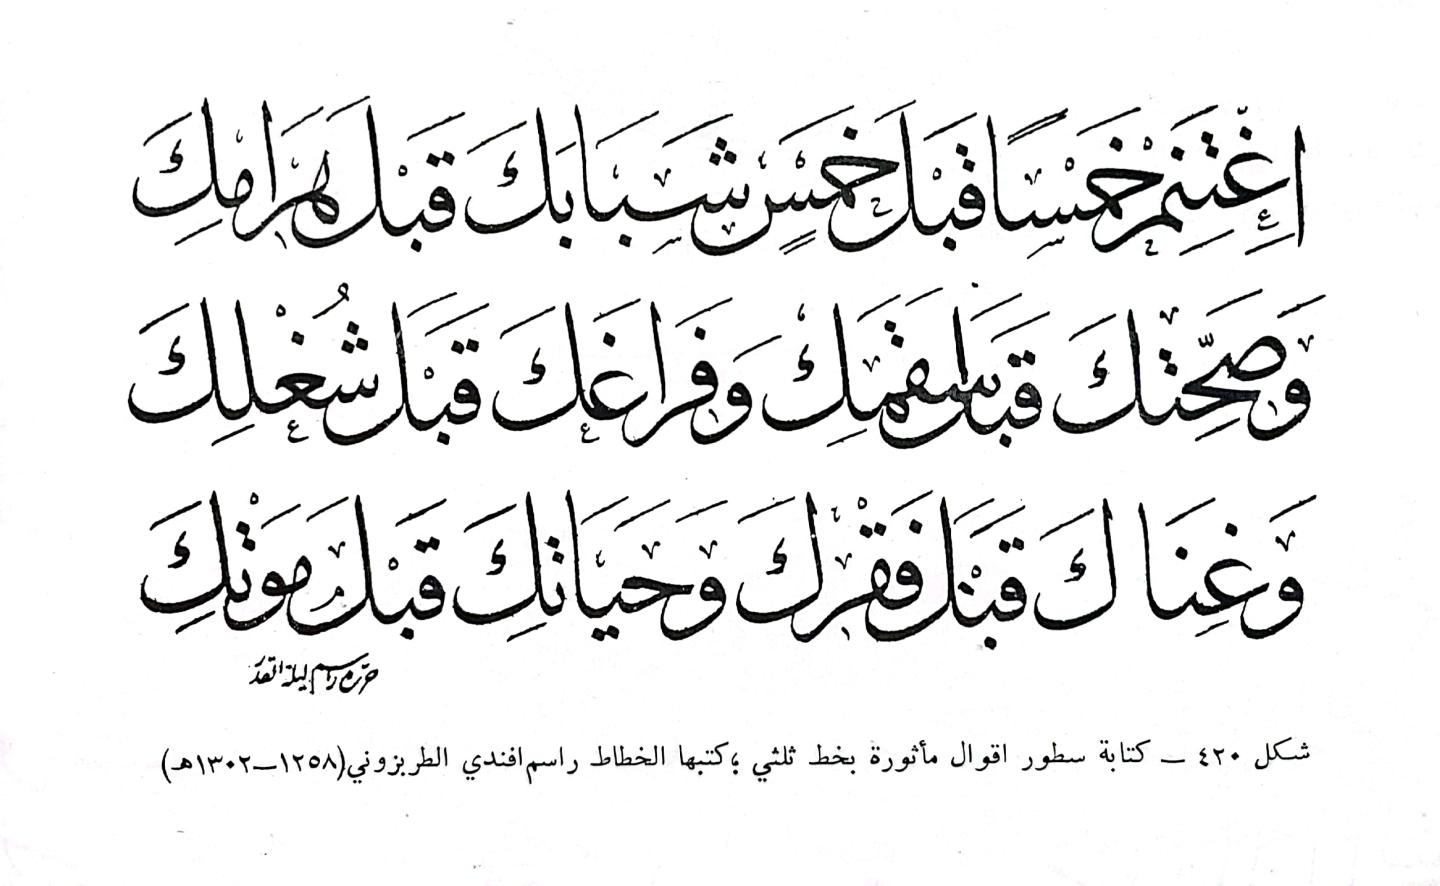 اِغْتَنِمْ خَمْسًا قَبْلَ خَمْسٍ شَبَابَكَ قَبْلَ هَرَامِكَ
وَصِحَّتَكَ قَبْلَ سَقَمِكَ وَفَرَاغَكَ قَبْلَ شُغْلِكَ
وَغِنَاكَ قَبْلَ فَقْرِكَ وَحَيَاتَكَ قَبْلَ مَوْتِكَ
حرّره راسم ليلة القدر
شكل ٤٢٠ — كتابة سطور اقوال مأثورة بخط ثلثي ؛ كتبها الخطاط راسم افندي الطربزوني (١٢٥٨—١٣٠٢هـ)